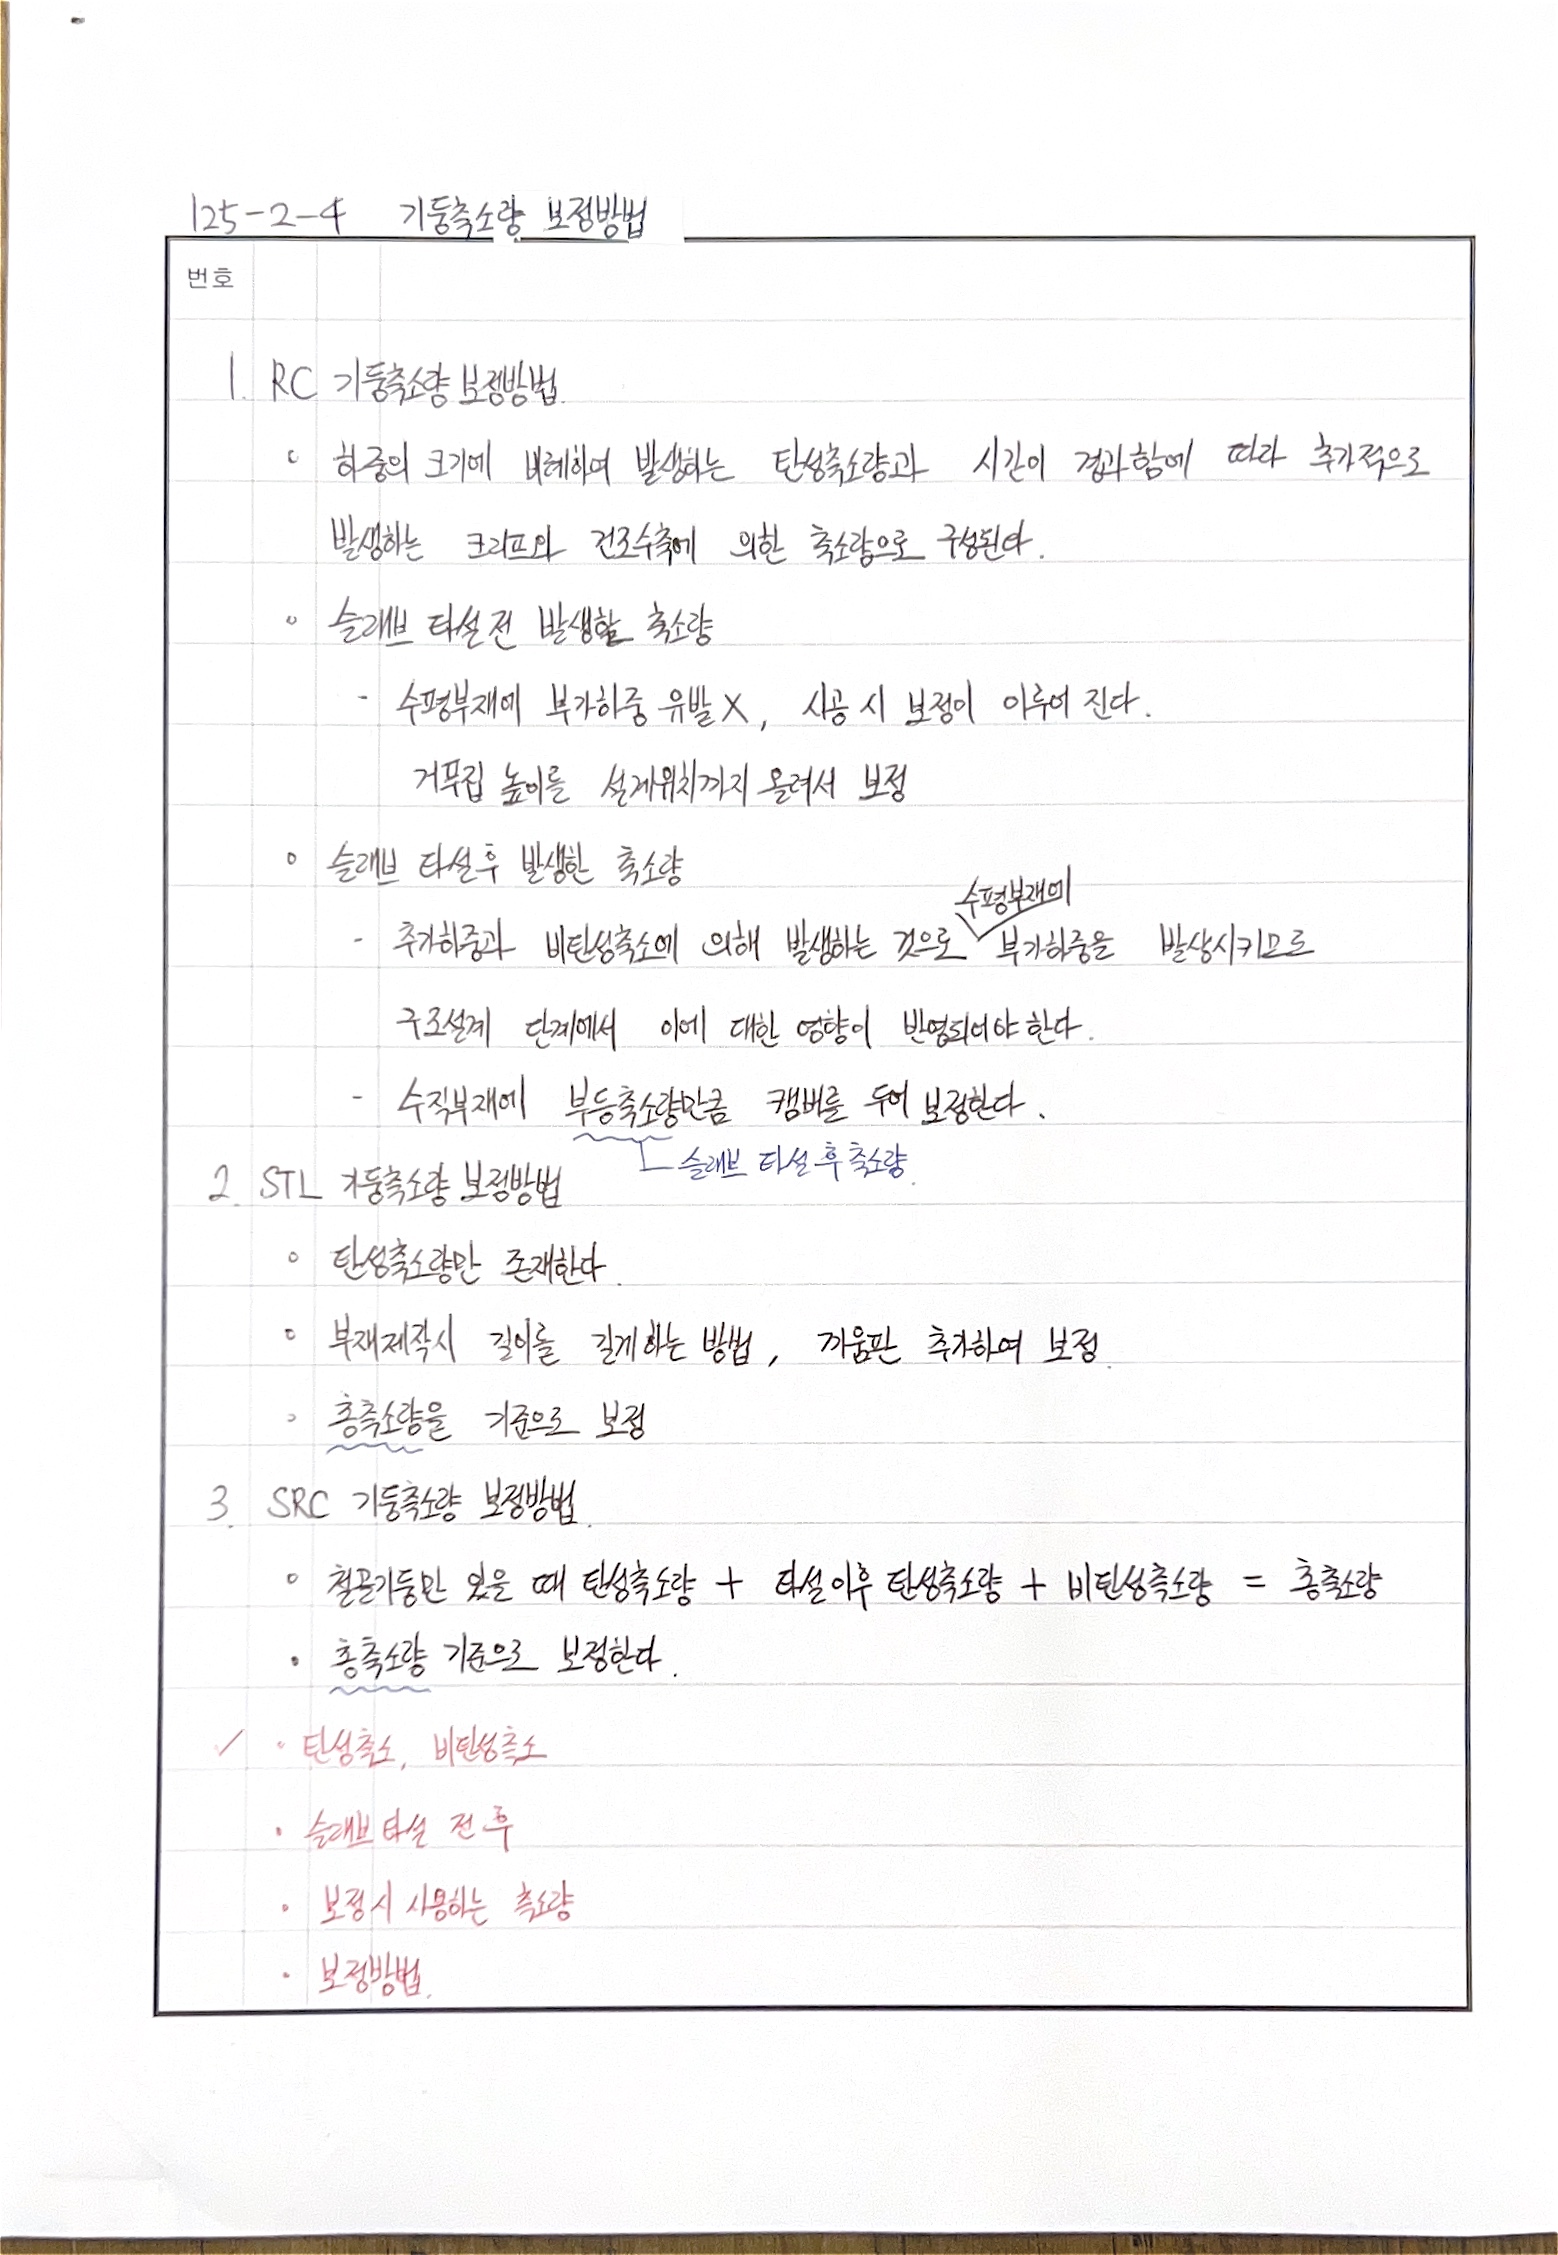 125-2-4 기둥축소량 보정방법
번호
1. RC 기둥축소량 보정방법.
◦ 하중의 크기에 비례하여 발생하는 탄성축소량과 시간이 경과함에 따라 추가적으로
발생하는 크리프와 건조수축에 의한 축소량으로 구성된다.
◦ 슬래브 타설 전 발생할 축소량
- 수평부재에 부가하중 유발 X, 시공 시 보정이 이루어 진다.
거푸집 높이를 설계위치까지 올려서 보정
◦ 슬래브 타설 후 발생한 축소량
수평부재에
- 추가하중과 비탄성축소에 의해 발생하는 것으로 부가하중을 발상시키므로
구조설계 단계에서 이에 대한 영향이 반영되어야 한다.
- 수직부재에 부등축소량만큼 캠버를 두어 보정한다.
슬래브 타설 후 축소량.
2. STL 기둥축소량 보정방법
◦ 탄성축소량만 존재한다.
◦ 부재제작시 길이를 길게 하는 방법, 끼움판 추가하여 보정.
◦ 총축소량을 기준으로 보정
3. SRC 기둥축소량 보정방법.
◦ 철골기둥만 있을 때 탄성축소량 + 타설이후 탄성축소량 + 비탄성축소량 = 총축소량
• 총축소량 기준으로 보정한다.
✓ • 탄성축소, 비탄성축소
• 슬래브 타설 전 후
• 보정시 사용하는 축소량
• 보정방법.